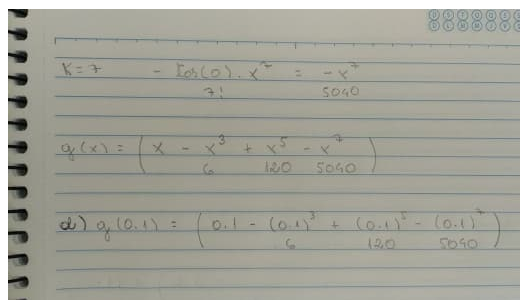 K=7 - Cos(0) . x^7 / 7! = -x^7 / 5040
g(x) = ( x - x^3 / 6 + x^5 / 120 - x^7 / 5040 )
d) g(0.1) = ( 0.1 - (0.1)^3 / 6 + (0.1)^5 / 120 - (0.1)^7 / 5040 )